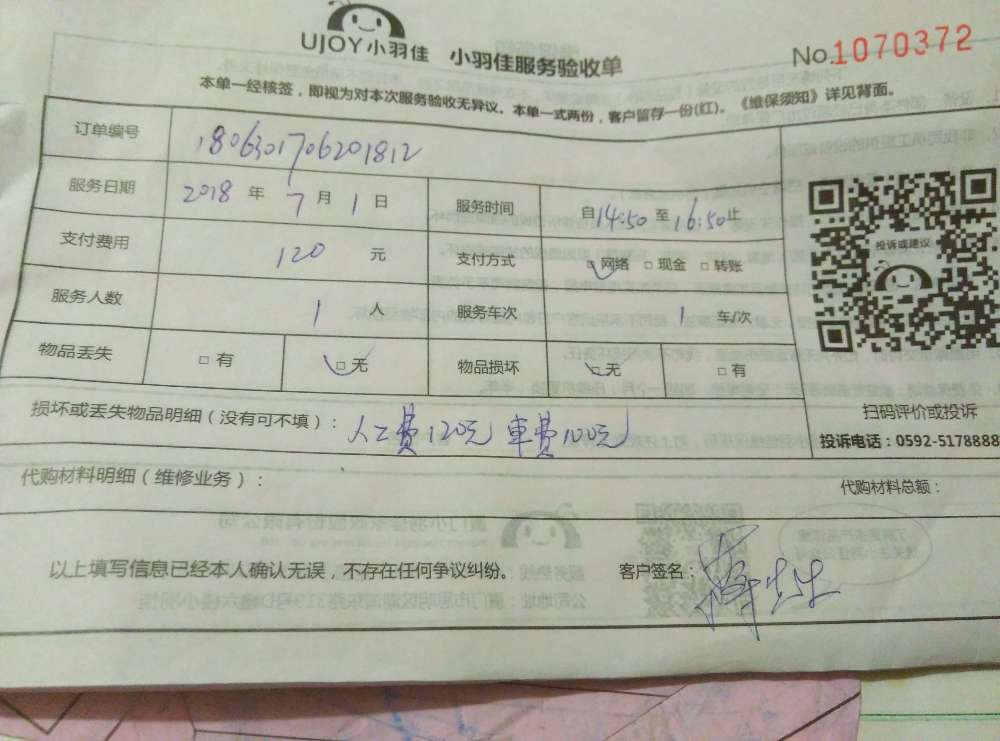 UJOY小羽佳 小羽佳服务验收单 No.1070372
本单一经核签，即视为对本次服务验收无异议。本单一式两份，客户留存一份(红)。《维保须知》详见背面。
订单编号 180630170620 1812
服务日期 2018 年 7 月 1 日 服务时间 自14:50 至 16:50止
支付费用 120 元 支付方式 □ 网络 □ 现金 □ 转账
服务人数 1 人 服务车次 1 车/次
物品丢失 □ 有 □ 无 物品损坏 □ 无 □ 有
投诉或建议
扫码评价或投诉
投诉电话：0592-5178888
损坏或丢失物品明细（没有可不填）： 人工费120元 車费100元
代购材料明细（维修业务）： 代购材料总额：
以上填写信息已经本人确认无误，不存在任何争议纠纷。 客户签名：